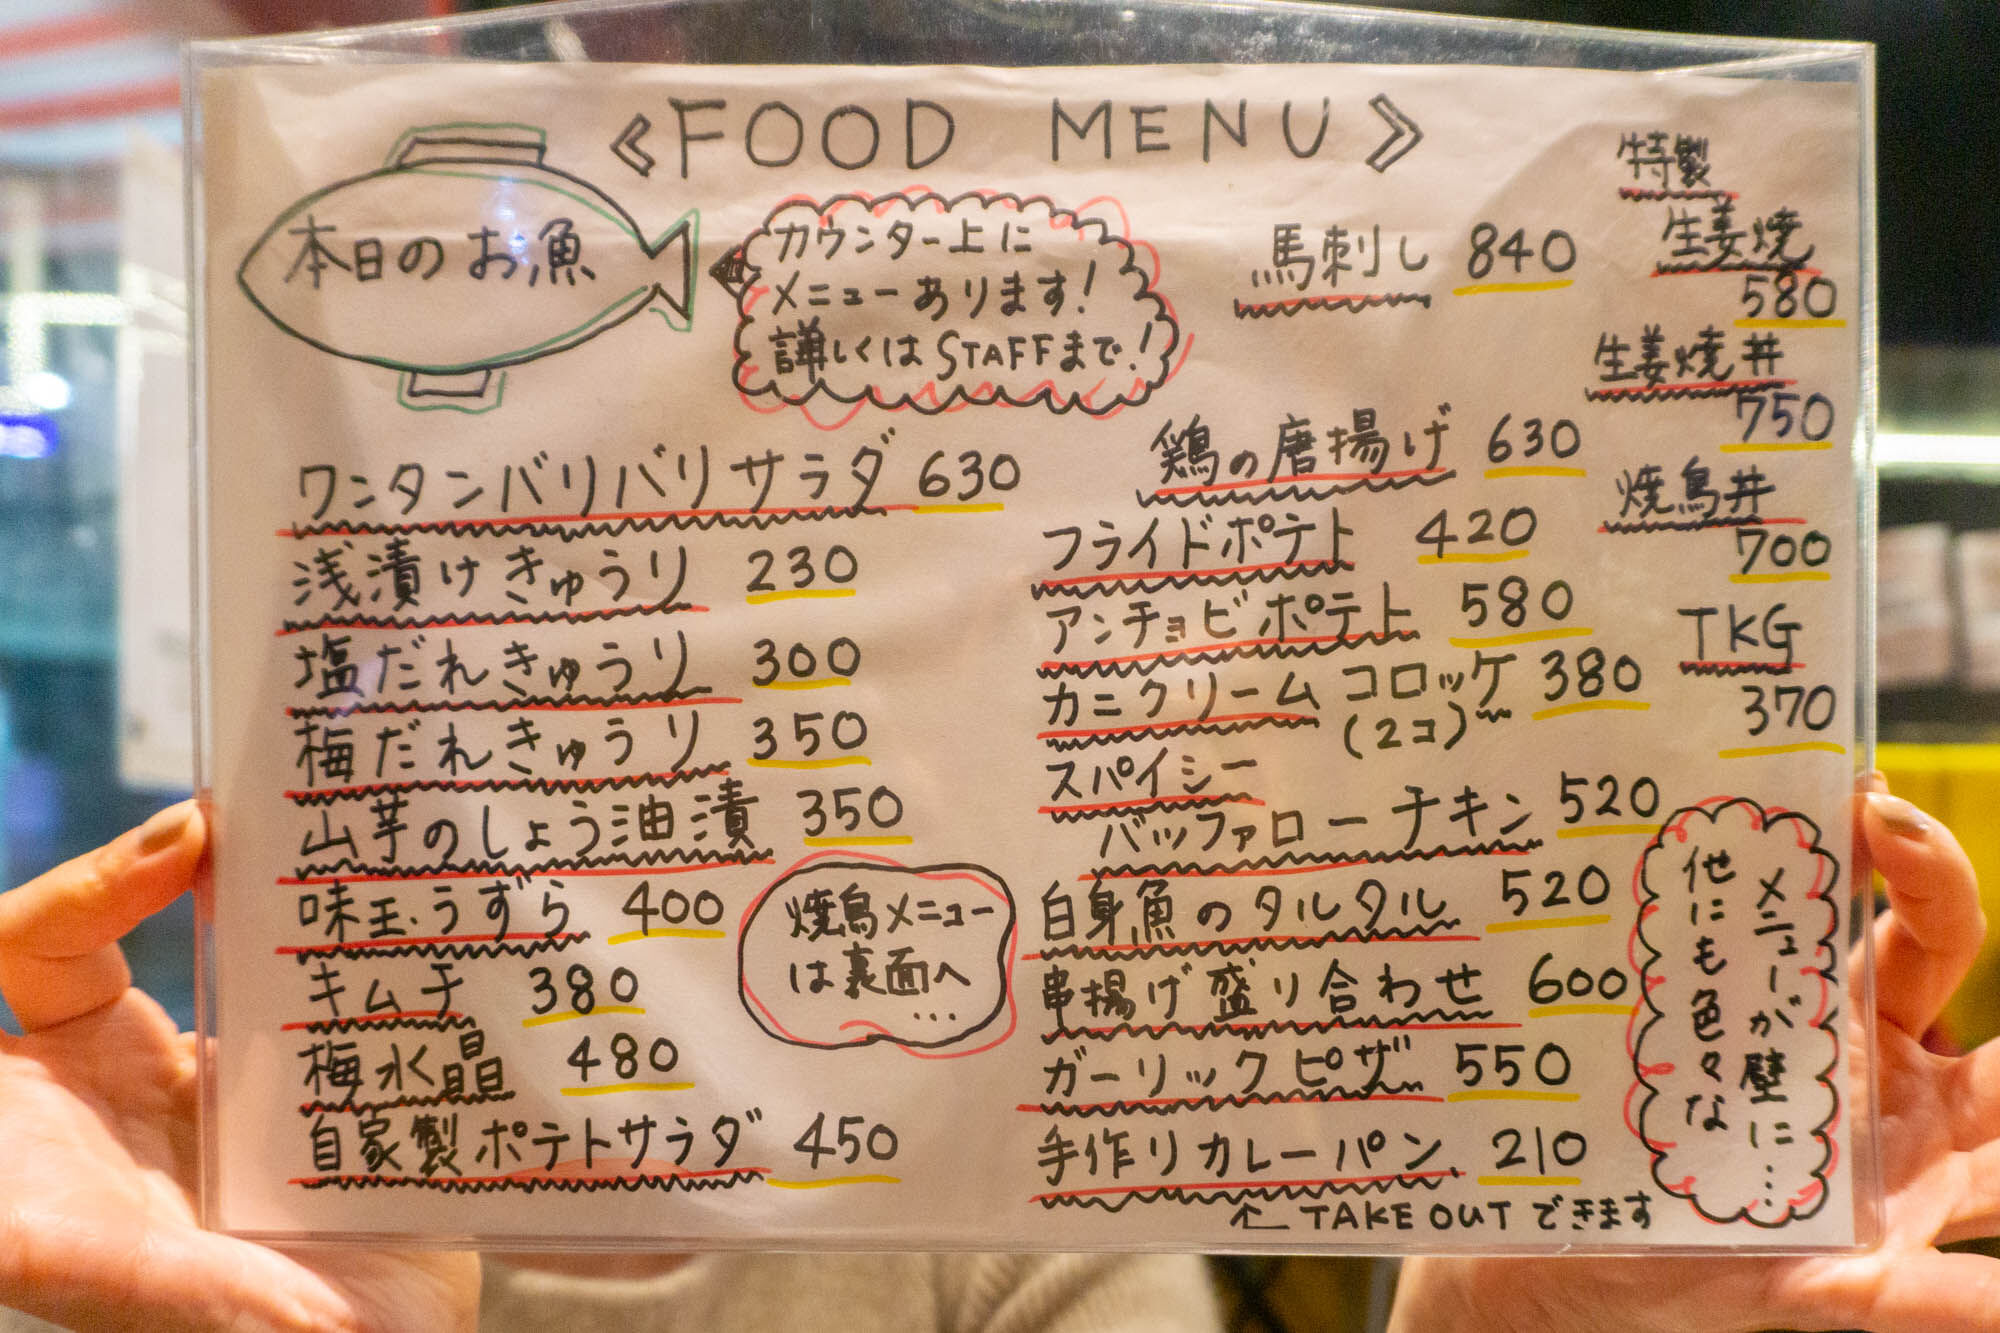 《FOOD MENU》
本日のお魚
カウンター上に
メニューあります!
詳しくはSTAFFまで!
馬刺し 840
ワンタンバリバリサラダ 630
浅漬けきゅうり 230
塩だれきゅうり 300
梅だれきゅうり 350
山芋のしょう油漬 350
味玉.うずら 400
キムチ 380
梅水晶 480
自家製ポテトサラダ 450
焼鳥メニュー
は裏面へ
...
鶏の唐揚げ 630
フライドポテト 420
アンチョビポテト 580
カニクリームコロッケ 380
(2コ)
スパイシー
バッファローチキン 520
白身魚のタルタル 520
串揚げ盛り合わせ 600
ガーリックピザ 550
手作りカレーパン 210
TAKE OUTできます
特製
生姜焼
580
生姜焼丼
750
焼鳥丼
700
TKG
370
他にも色々な
メニューが壁に...